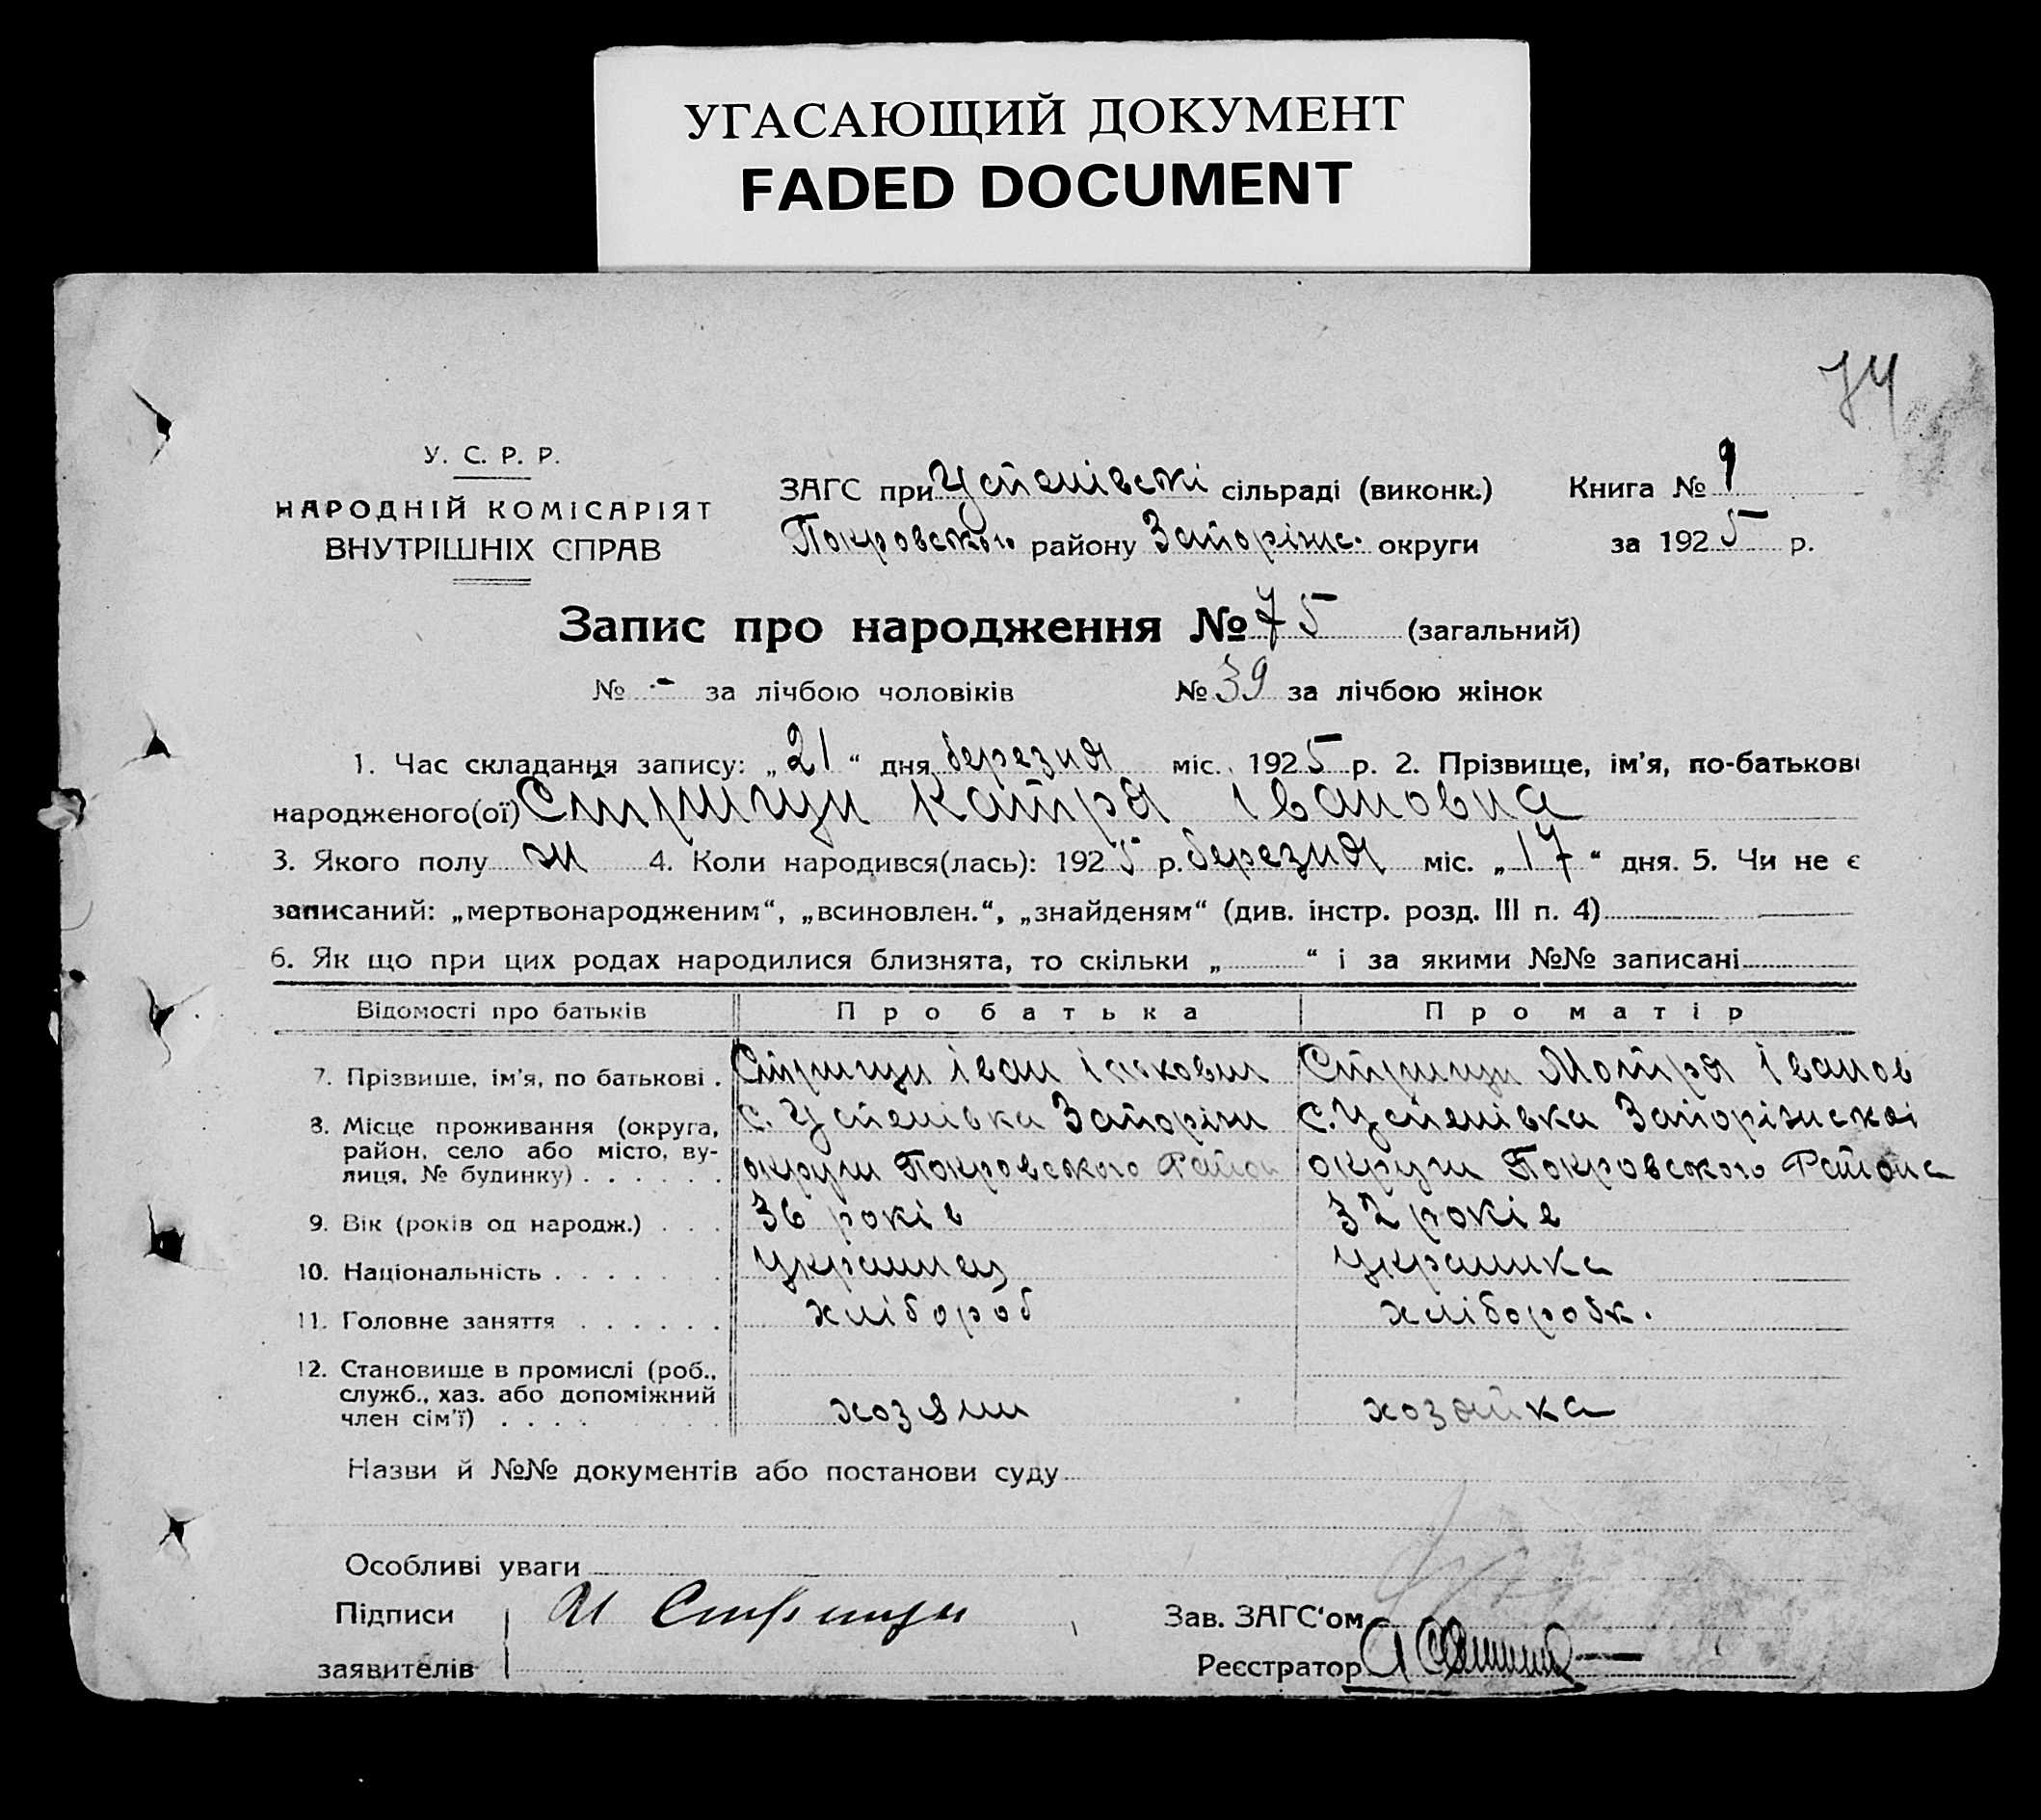 УГАСАЮЩИЙ ДОКУМЕНТ
FADED DOCUMENT
74
У. С. Р. Р.
НАРОДНІЙ КОМІСАРІЯТ
ВНУТРІШНІХ СПРАВ
ЗАГС при Успенівскі сільраді (виконк.)
Покровського району Запоріж. округи
Книга № 1
за 1925 р.
Запис про народження № 75 (загальний)
№ - за лічбою чоловіків № 39 за лічбою жінок
1. Час складання запису: „21“ дня березня міс. 1925 р. 2. Прізвище, ім’я, по-батькові
народженого(ої) Стрищи Катря Івановна
3. Якого полу ж 4. Коли народився(лась): 1925 р. березня міс. „17“ дня. 5. Чи не є
записаний: „мертвонародженим“, „всиновлен.“, „знайденям“ (див. інстр. розд. III п. 4)
6. Як що при цих родах народилися близнята, то скільки „ “ і за якими №№ записані
Відомості про батьків Про батька Про матір
7. Прізвище, ім’я, по батькові . Іван Мотря Іванов
8. Місце проживання (округа, район, село або місто, ву-
лиця, № будинку) . . . . . .
с. Успенівка Запоріж округи Покровського Район
с. Успенівка Запоріжскоі округи Покровського Района
9. Вік (років од народж.) . . . 36 років 32 років
10. Національність . . . . . . . Украинец Украинка
11. Головне заняття . . . . . . хлібороб хліборобк.
12. Становище в промислі (роб.,
служб., хаз. або допоміжний
член сім’ї) . . . . хозяин хозяйка
Назви й №№ документів або постанови суду
Особливі уваги
Підписи И
заявителів
Зав. ЗАГС‘ом
Реєстратор